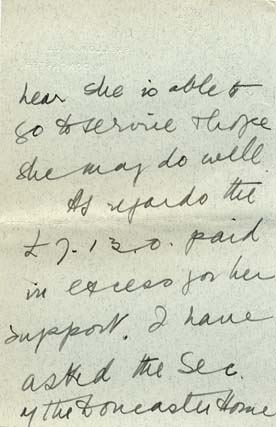 hear she is able to
go to service & hope
she may do well.
As regards the
£7.13.0. paid
in excess for her
support. I have
asked the Sec.
of the Doncaster Home